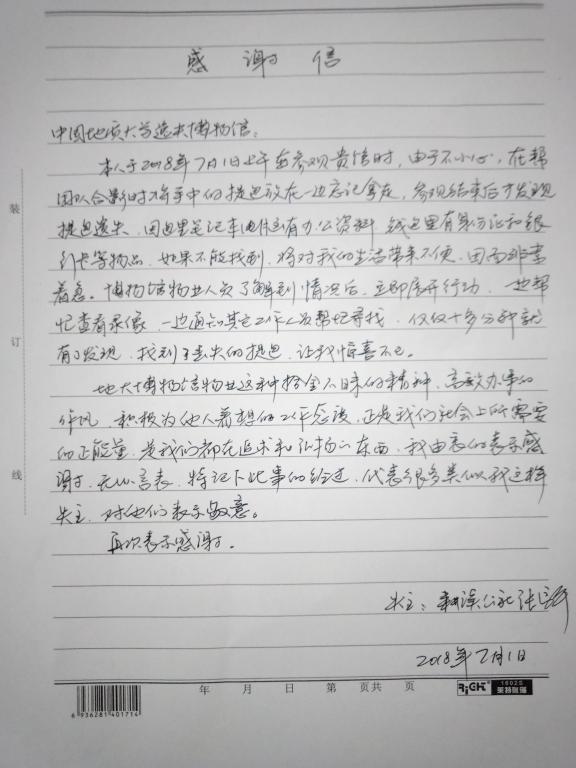 感谢信
中国地质大学逸夫博物馆：
本人于2018年7月1日上午在参观贵馆时，由于不小心，在帮
团队合影时将手中的提包放在一边忘记拿在，参观结束后才发现
提包遗失，因包里笔记本电脑还有办公资料，钱包里有身份证和银
行卡等物品，如果不能找到，将对我的生活带来不便，因而非常
着急。博物馆物业人员了解到情况后，立即展开行动，一边帮
忙查看录像，一边通知其它工作人员帮忙寻找，仅仅十多分钟就
有了发现，找到了丢失的提包，让我惊喜不已。
地大博物馆物业这种拾金不昧的精神，高效办事的
作风，积极为他人着想的工作态度，正是我们社会上所需要
的正能量，是我们都在追求和弘扬的东西，我由衷的表示感
谢，无以言表，特记下此事的经过，代表很多类似我这样
失主，对他们表示敬意。
再次表示感谢。
失主：
2018年7月1日
装
订
线
年 月 日 第 页共 页
RiCH 1602S
莱特瑞奇
6 936281 401714